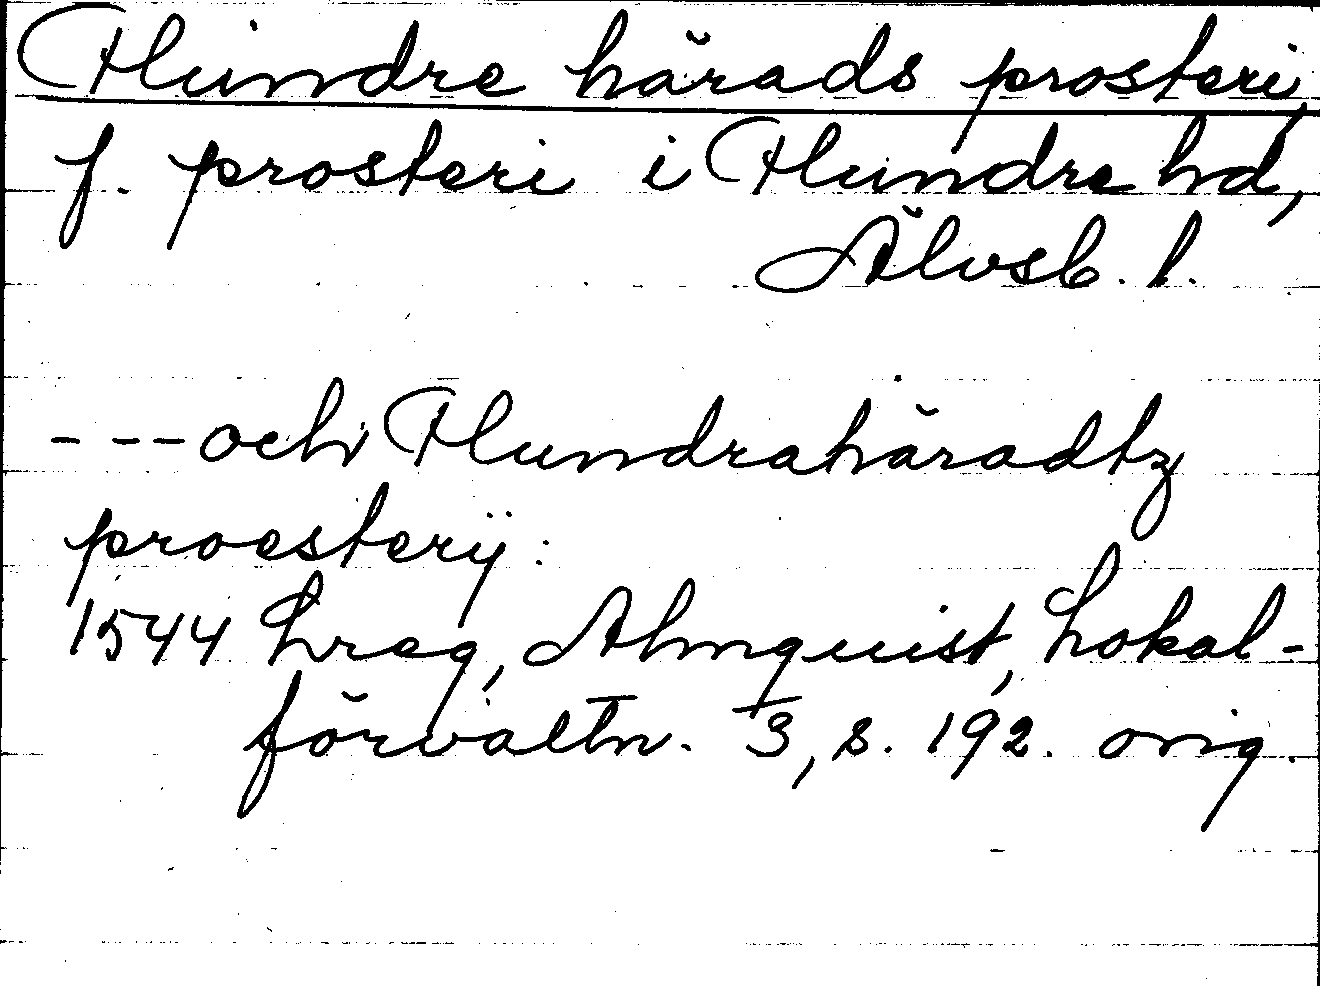 Flundre härads prosteri,
f. prosteri i Flundre hd,
Älvsb. l.
- --- och Flundrahäradtz
proesterÿ:
1544 Lreg, Almquist, Lokal-
förvaltn. 3, s. 192. orig.